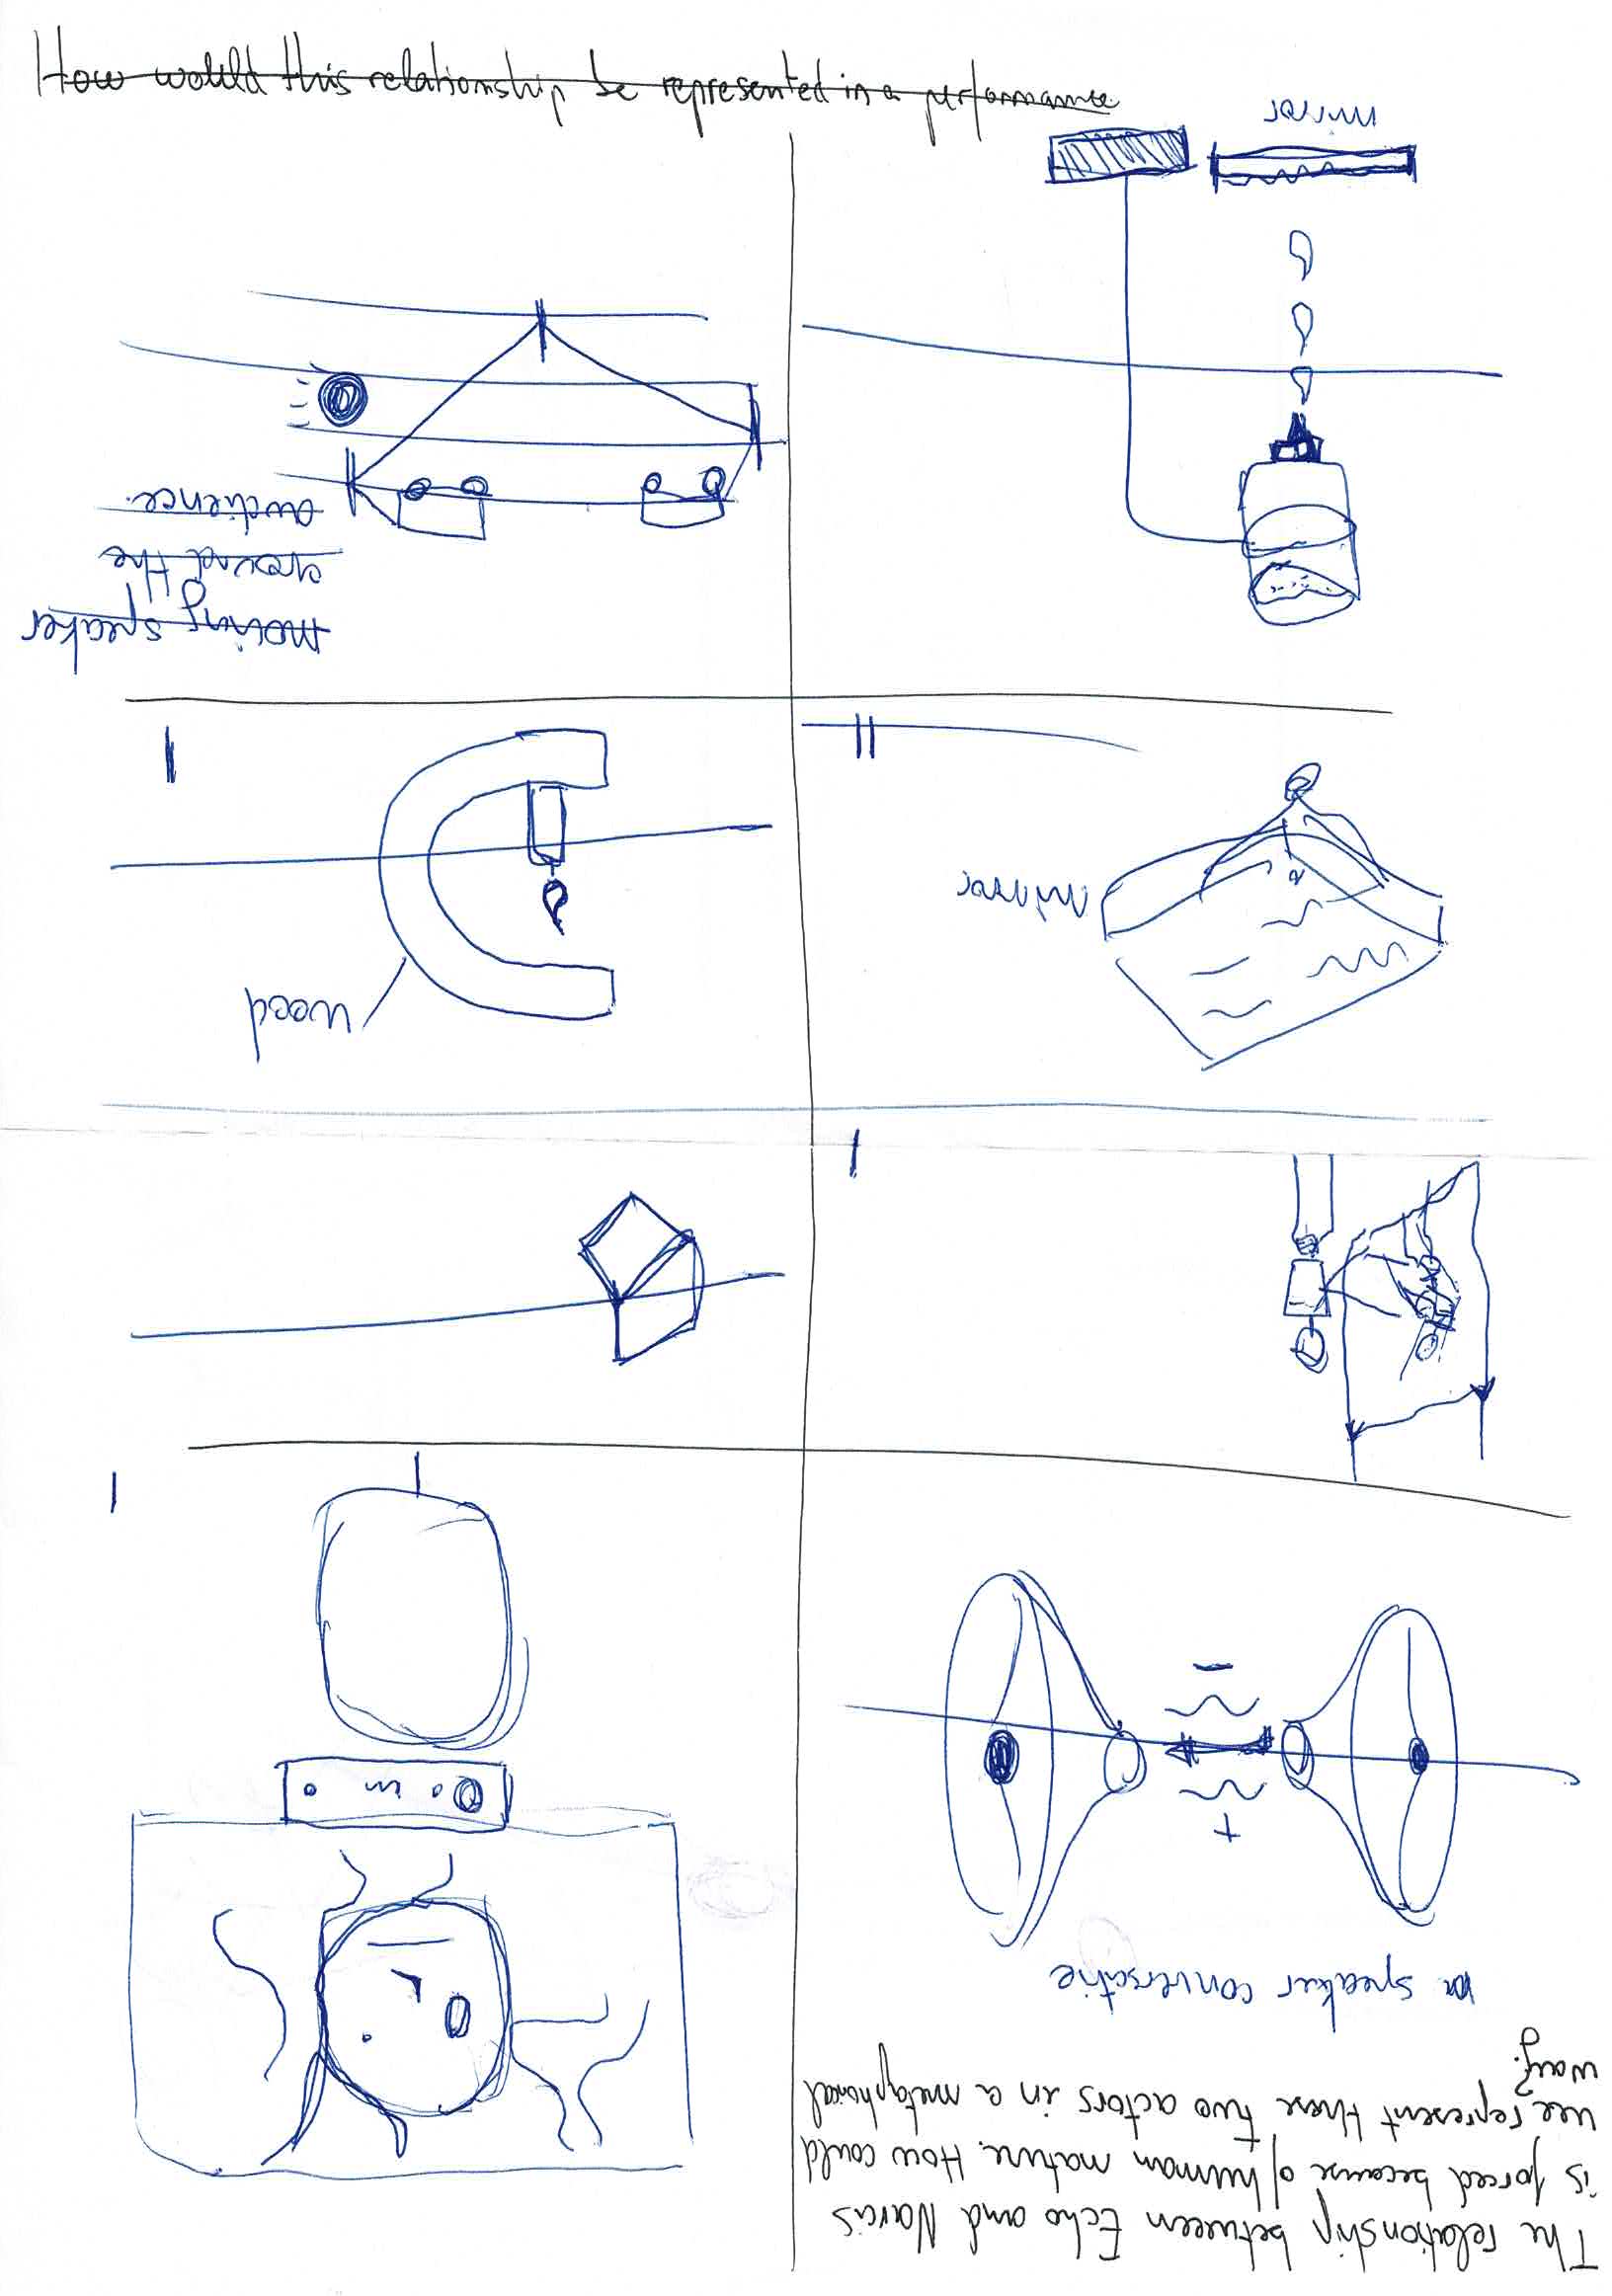 The relationship between Echo and Narcis
is forced because of human nature. How could
we represent these two actors in a metaphorical
way?
speaker conversatie
+
-
in
mirror
wood
moving speaker
around the
audience.
mirror
How would this relationship be represented in a performance